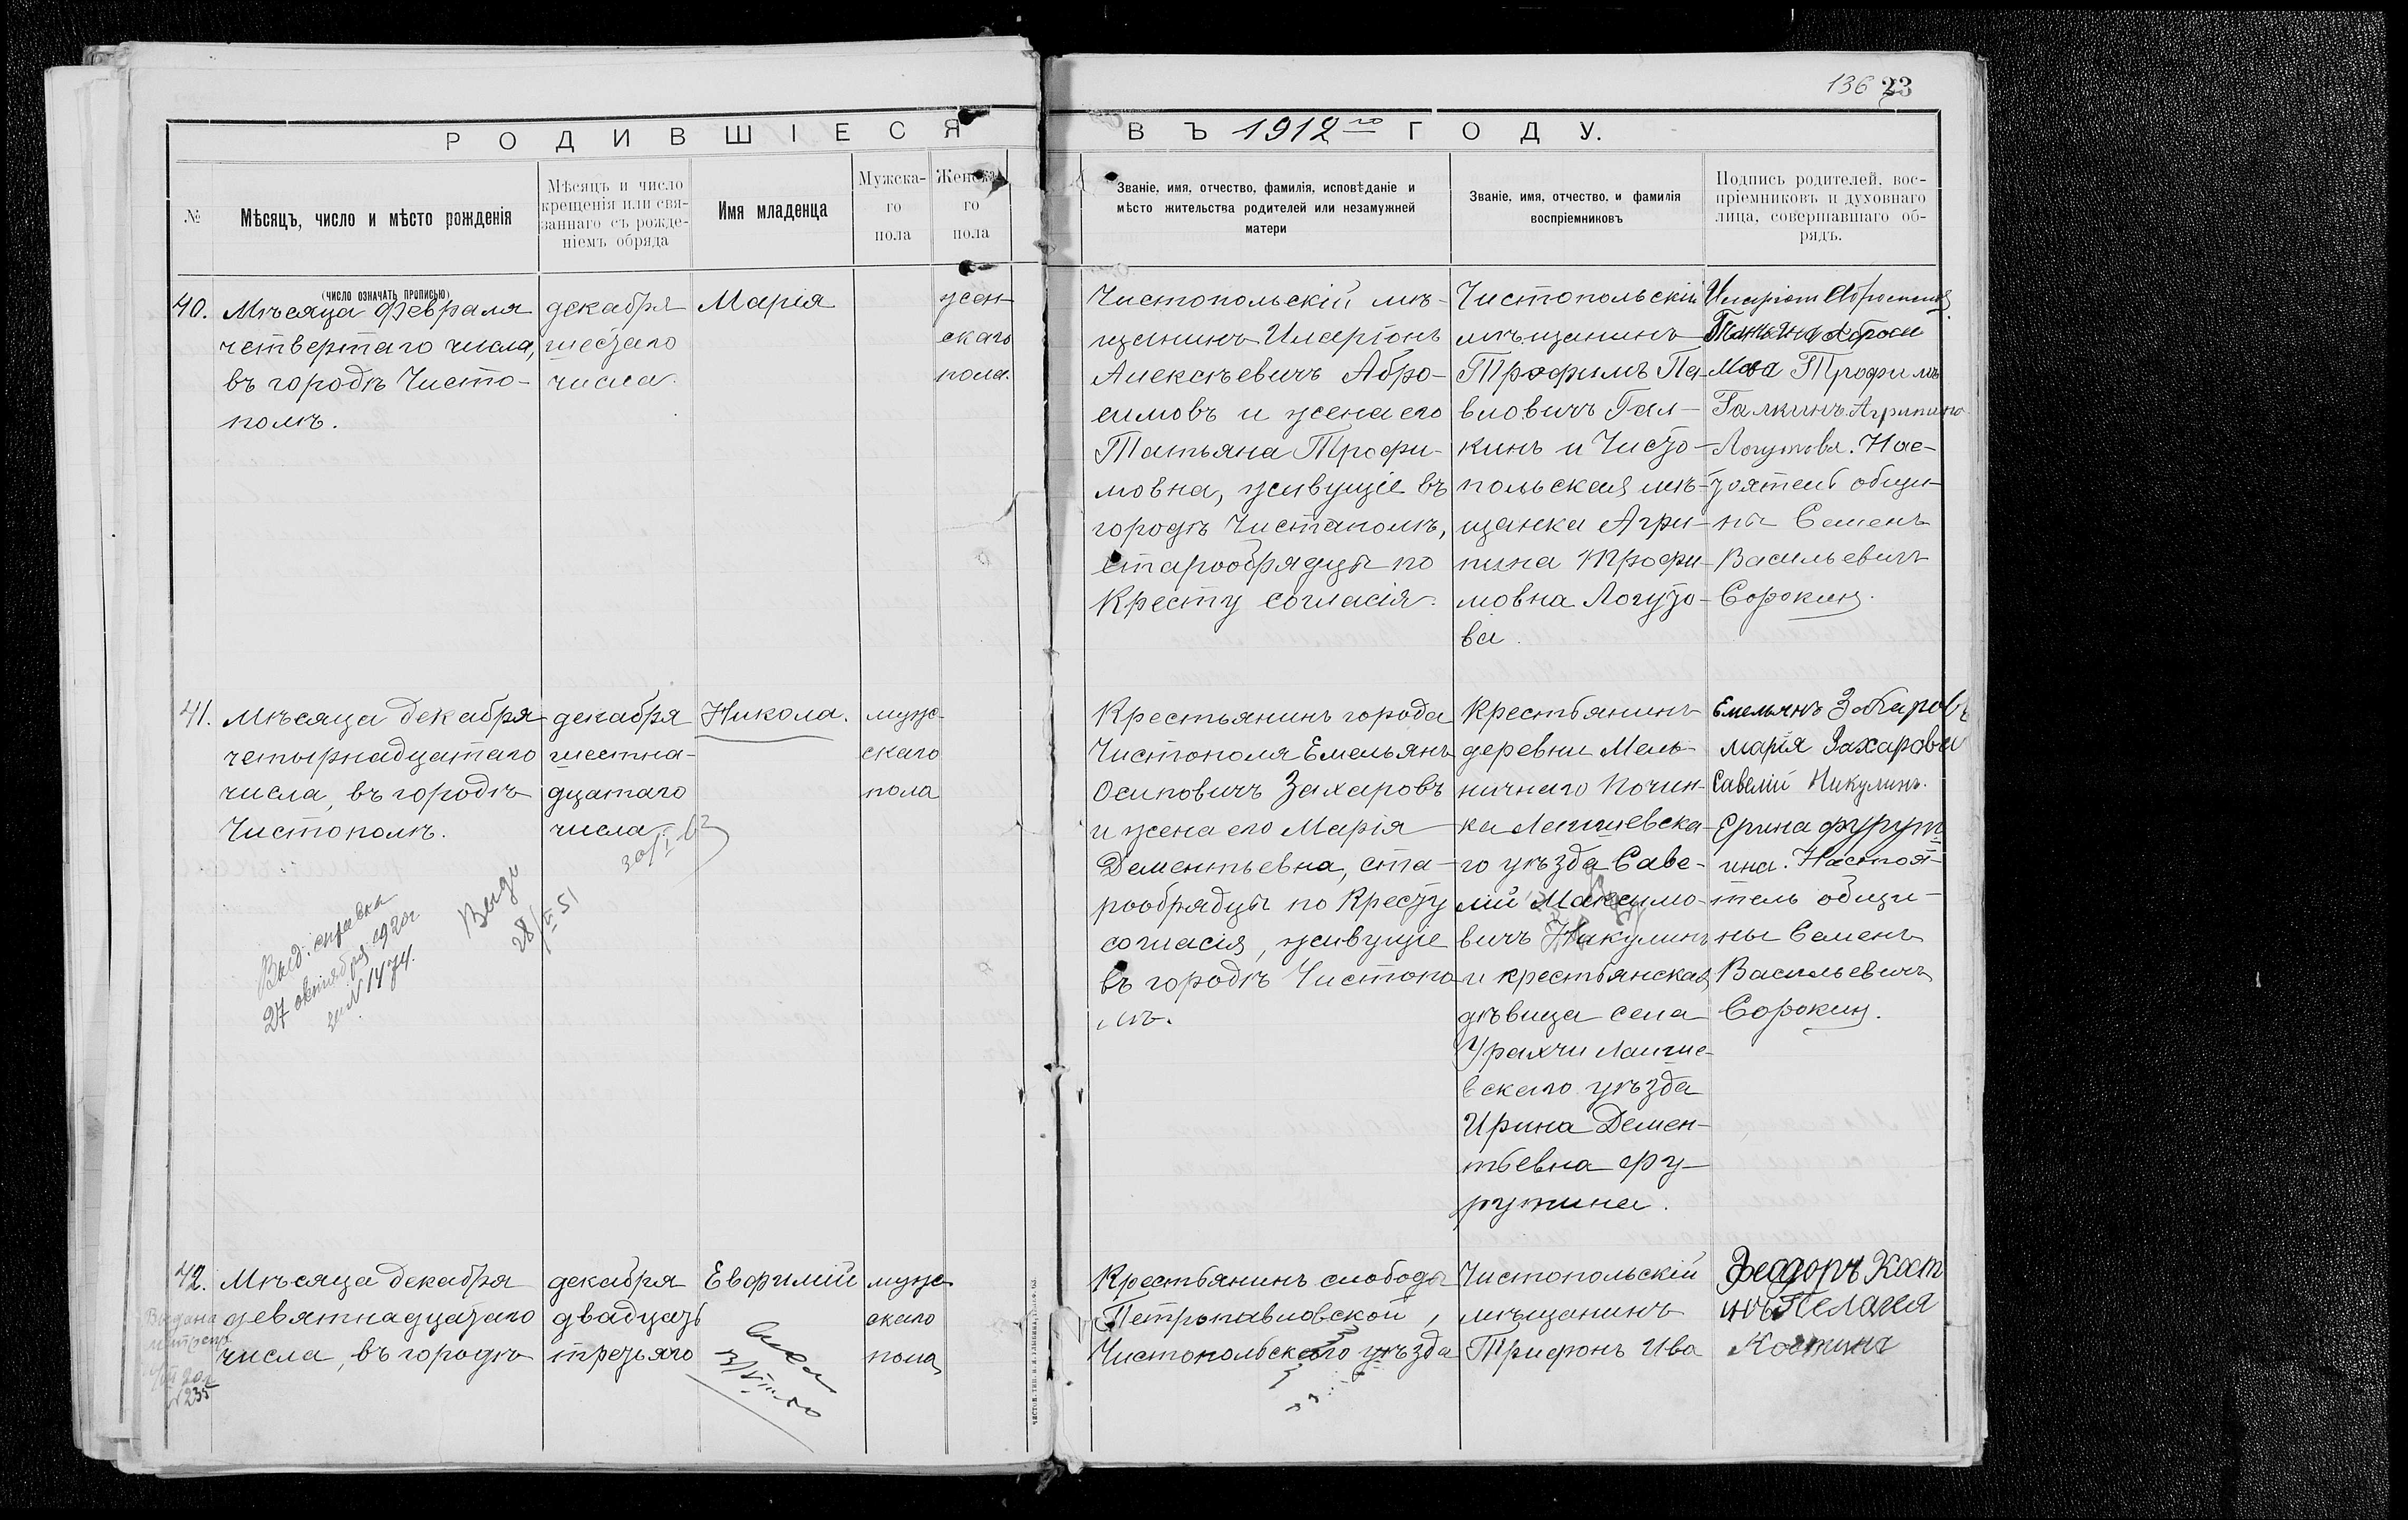 136 23
РОДИВШІЕСЯ
ВЪ 1912го ГОДУ.
№
Мѣсяцъ, число и мѣсто рожденія
(число означать прописью)
Мѣсяцъ и число
крещенія или свя-
заннаго съ рожде-
ніемъ обряда
Имя младенца
Мужска-
го
пола
Женска-
го
пола
Званіе, имя, отчество, фамилія, исповѣданіе и
мѣсто жительства родителей или незамужней
матери
Званіе, имя, отчество, и фамилія
воспріемниковъ
Подпись родителей, вос-
пріемниковъ и духовнаго
лица, совершавшаго об-
рядъ.
40.
Мѣсяца Февраля
четвертаго числа,
въ городѣ Чисто-
полѣ.
декабря
шестаго
числа.
Марія
жен-
скаго
пола.
Чистопольскій мѣ-
щанинъ Иларіонъ
Алексѣевичъ Абро-
симовъ и жена его
Татьяна Трофи-
мовна, живущіе въ
городѣ Чистополѣ,
старообрядцы по
Кресту согласія.
Чистопольскій
мѣщанинъ
Трофимъ Па-
вловичъ Гал-
кинъ и Чисто-
польская мѣ-
щанка Агри-
пина Трофи-
мовна Логуто-
ва.
Иларіон Абросимов
Татьяна Аброси
мова Трофимъ
Галкинъ. Агрипина
Логутова. Нас-
тоятель общи-
ны Семенъ
Васильевичъ
Сорокин.
41.
Мѣсяца декабря
четырнадцатаго
числа, въ городѣ
Чистополѣ.
декабря
шестна-
дцатаго
числа
Никола.
муж-
скаго
пола
Крестьянинъ города
Чистополя Емельянъ
Осиповичъ Захаровъ
и жена его Марія
Дементьевна, ста-
рообрядцы по Кресту
согласія, живущіе
въ городѣ Чистопо-
лѣ.
Крестьянинъ
деревни Мель-
ничнаго Почин-
ка Лаишевска-
го уѣзда Саве-
лій Максимо-
вичъ Никулинъ
и крестьянская
дѣвица села
Урахчи Лаише-
вскаго уѣзда
Ирина Демен-
тьевна Фу-
рутина.
Емельянъ Захаровъ
марія Захарова
Савелій Никулинъ.
Ерина фурут
ина. Настоя-
тель общи-
ны Семенъ
Васильевичъ
Сорокин.
Выд. справка
27 октября 1920г
за N 1474.
28/VI 51
42.
Мѣсяца декабря
девятнадцатаго
числа, въ городѣ
декабря
двадцать
третьяго
Евфимій
муж-
скаго
пола
Крестьянинъ слободы
Петропавловской,
Чистопольскаго уѣзда
Чистопольскій
мѣщанинъ
Трифонъ Ива
Феодоръ Кост
инъ Пелагея
Костина
Выдана
N 235